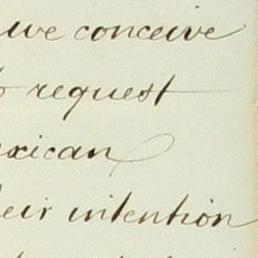 we conceive
request
exican
eir intention